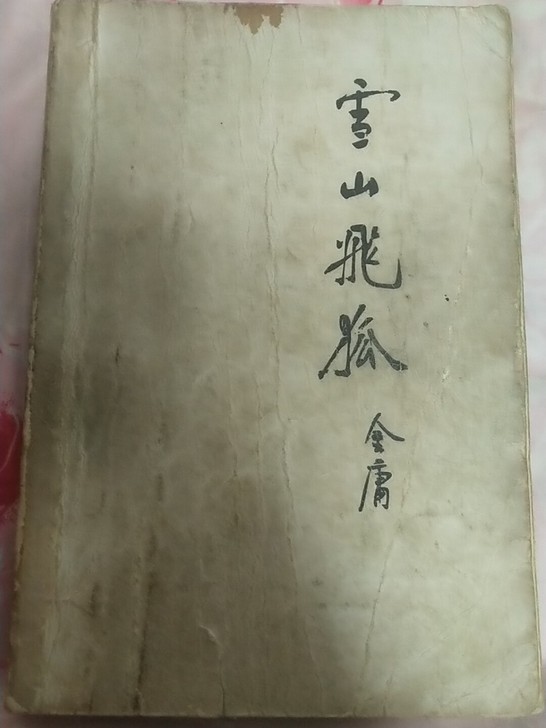 雪山飛狐
金庸